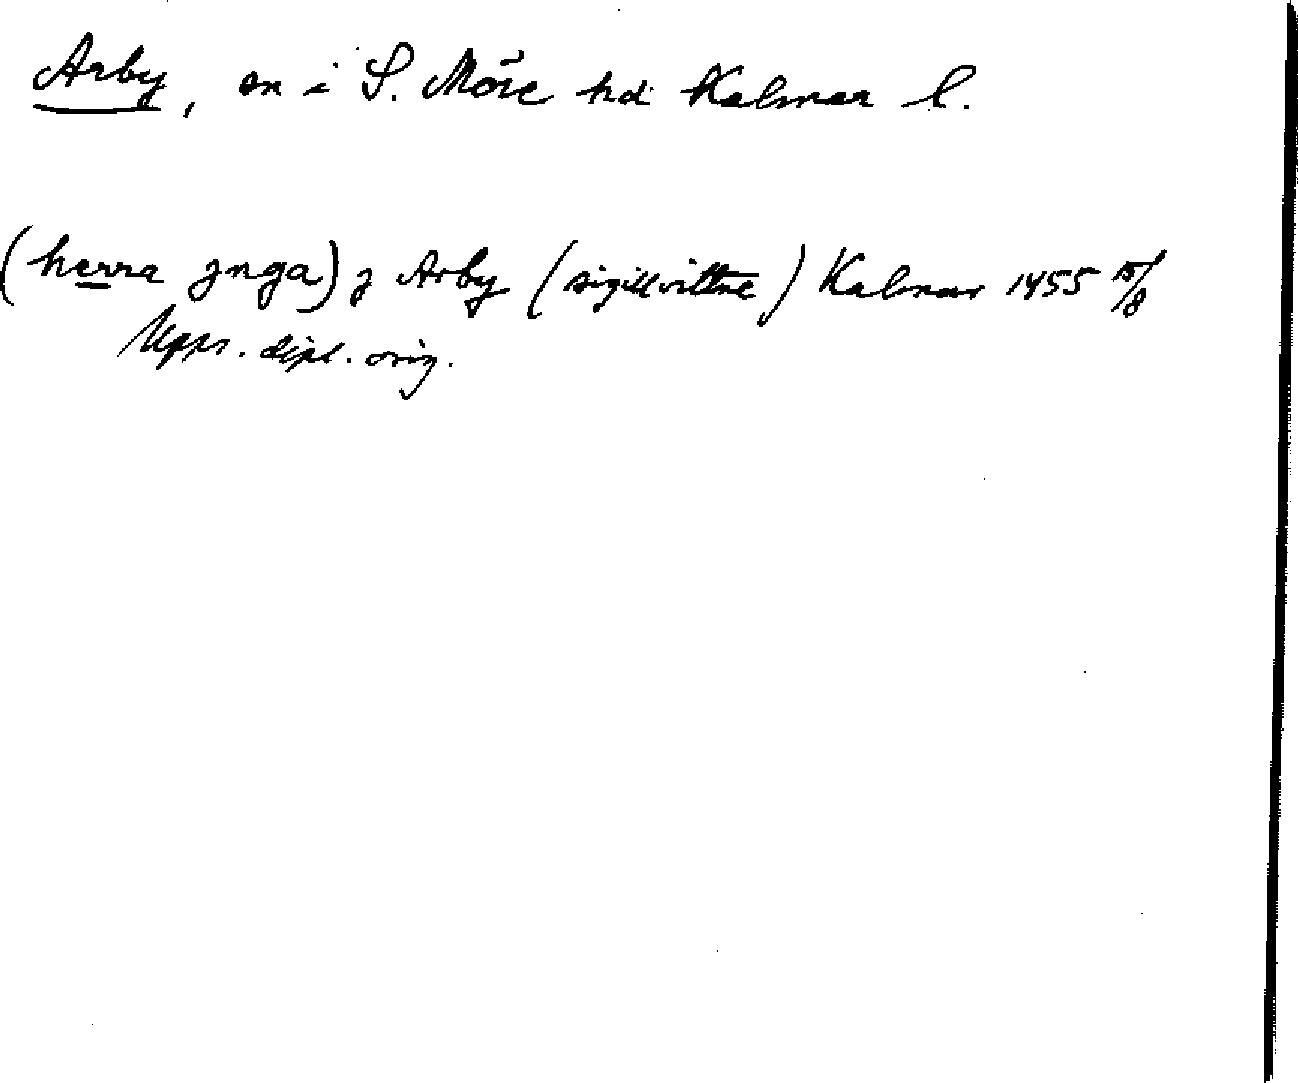 Arby, sn i S. Möre hd Kalmar l.
(herra jnga) j Arby (sigillvittne) Kalmar 1455 15/8
Upps. dipl. orig.